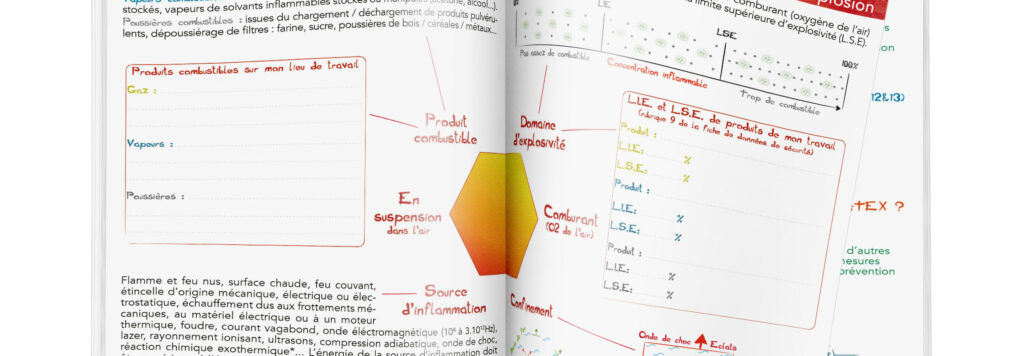 stockés, vapeurs de solvants inflammables stockés ou
Poussières combustibles : issues du chargement / déchargement de produits pulvéru-
lents, dépoussiérage de filtres : farine, sucre, poussières de bois / céréales / métaux...
Produits combustibles sur mon lieu de travail
Gaz :
Vapeurs :
Poussières :
Produit
combustible
En
suspension
dans l'air
Source
d'inflammation
Flamme et feu nus, surface chaude, feu couvant,
étincelle d'origine mécanique, électrique ou élec-
trostatique, échauffement dus aux frottements mé-
caniques, au matériel électrique ou à un moteur
thermique, foudre, courant vagabond, onde éléctromagnétique (10⁴ à 3.10¹²Hz),
lazer, rayonnement ionisant, ultrasons, compression adiabatique, onde de choc,
réaction chimique exothermique*... L'énergie de la source d'inflammation doit
plosion
comburant (oxygène de l'air)
limite supérieure d'explosivité (L.S.E).
LIE
LSE
100%
Pas assez de combustible
Concentration inflammable
Trop de combustible
Domaine
d'explosivité
L.I.E. et L.S.E. de produits de mon travail
(rubrique 9 de la fiche de données de sécurité)
Produit :
L.I.E: %
L.S.E: %
Produit :
L.I.E: %
L.S.E: %
Produit :
L.I.E: %
L.S.E: %
Comburant
(O2 de l'air)
Confinement
Onde de choc Eclats
on
12&13)
ATEX ?
d'autres
mesures
prévention